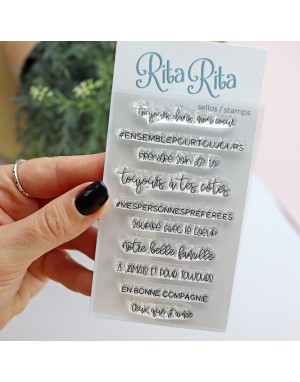 Rita Rita
sellos / stamps
toujours dans mon coeur
#ENSEMBLEPOURTOUJOURS
PRENDRE SOIN DE TOI
toujours à tes côtés
#MESPERSONNESPRÉFÉRÉES
SOURIRE AVEC LE COEUR
notre belle famille
À JAMAIS ET POUR TOUJOURS
EN BONNE COMPAGNIE
ceux que j'aime